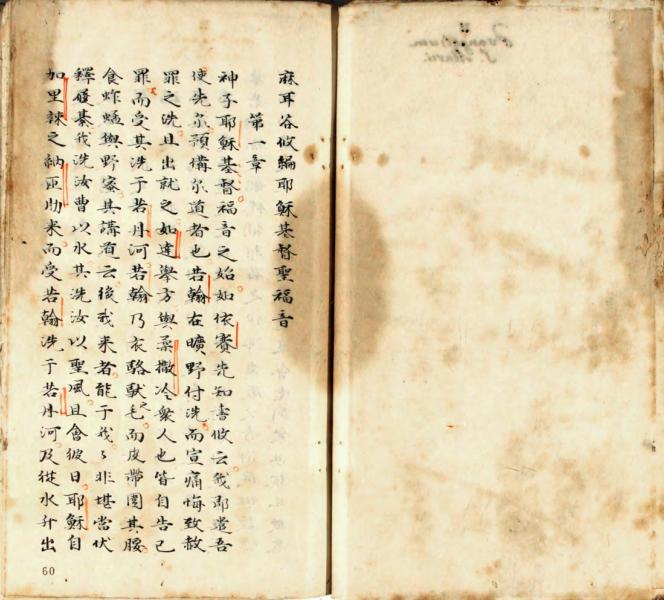 麻耳谷攸編耶穌基督聖福音
第一章
神子耶穌基督福音之始如依賽先知書攸云我即遣吾
使先尔顏備尔道者也若翰在曠野付洗而宣痛悔致赦
罪之洗且出就之如達舉方與柔撒冷衆人也皆自告己
罪而受其洗于若丹河若翰乃衣駱獸之毛而皮帶圍其腰
食蚱蜢與野蜜其講道云後我來者能于我々非堪當伏
釋屐綦我洗汝曹以水其洗汝以聖風且會彼日耶穌自
加里辣之納匝肋來而受若翰洗于若丹河及從水升出
60